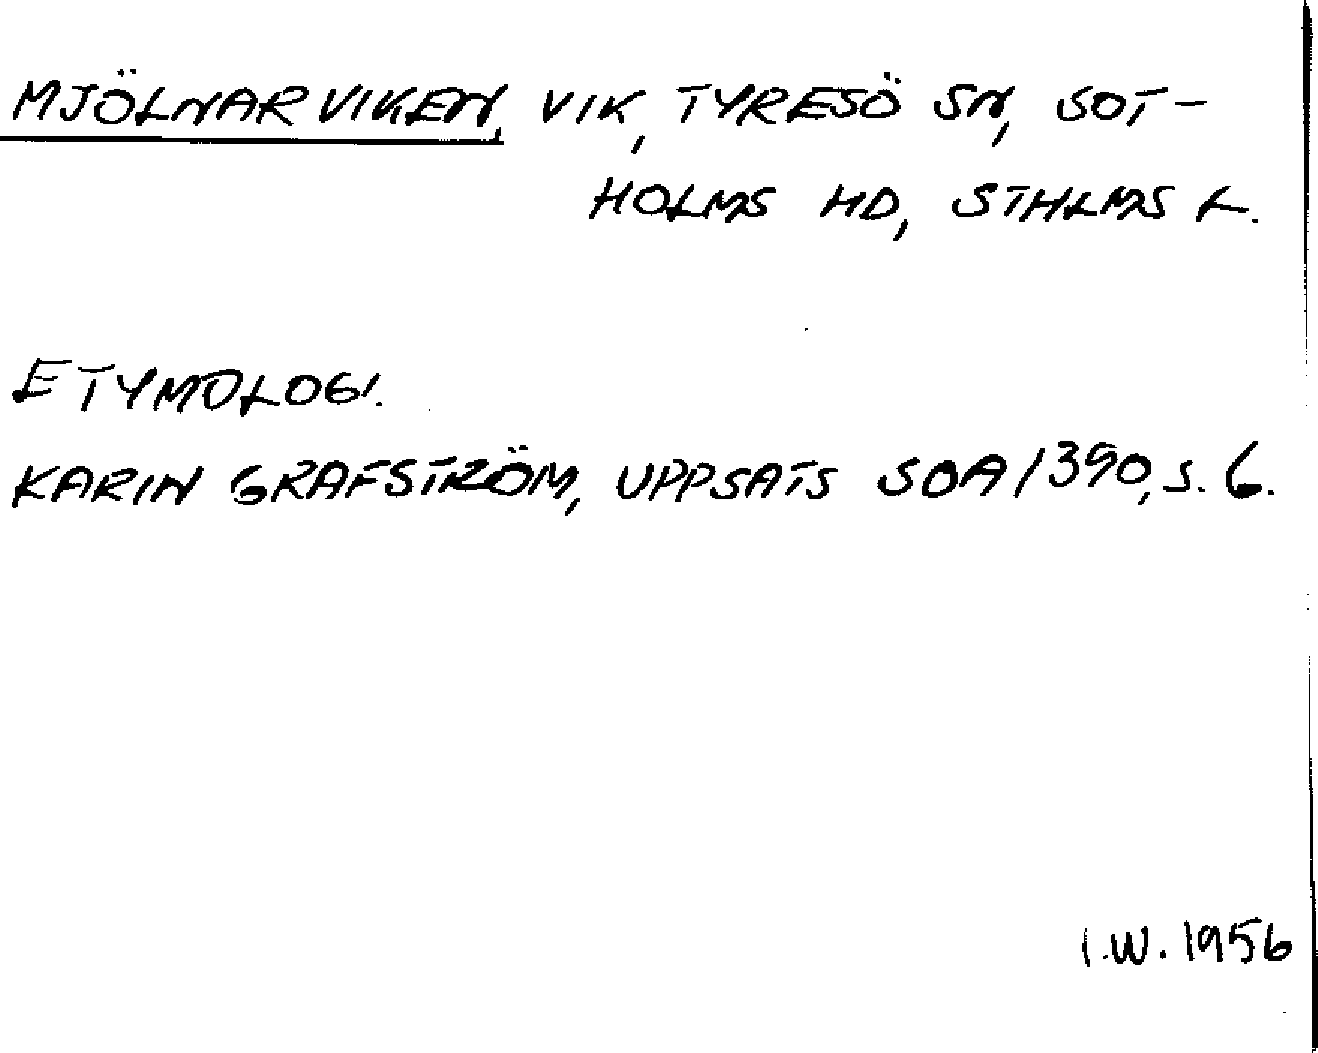 MJÖLNARVIKEN, VIK, TYRESÖ SN, SOT-
HOLMS HD, STHLMS L.
ETYMOLOGI.
KARIN GRAFSTRÖM, UPPSATS SOA/390, S. 6.
I.W. 1956